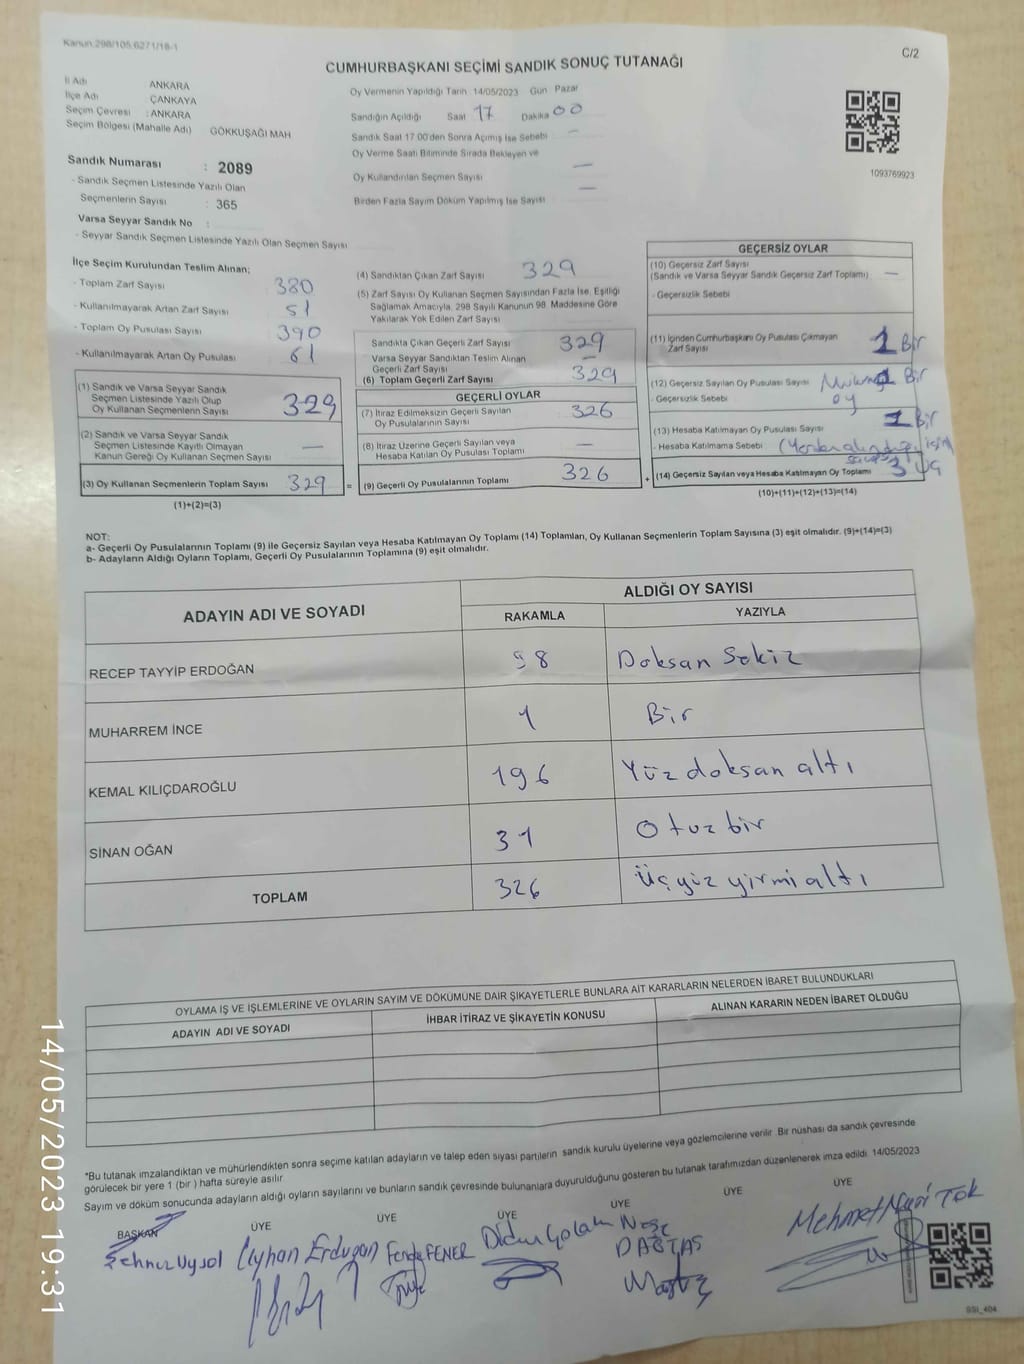 Kanun:298/105,6271/18-1
C/2
CUMHURBAŞKANI SEÇİMİ SANDIK SONUÇ TUTANAĞI
İl Adı ANKARA
İlçe Adı ÇANKAYA
Seçim Çevresi : ANKARA
Seçim Bölgesi (Mahalle Adı) GÖKKUŞAĞI MAH
Sandık Numarası : 2089
- Sandık Seçmen Listesinde Yazılı Olan
Seçmenlerin Sayısı : 365
Varsa Seyyar Sandık No :
- Seyyar Sandık Seçmen Listesinde Yazılı Olan Seçmen Sayısı
Oy Vermenin Yapıldığı Tarih 14/05/2023 Gün Pazar
Sandığın Açıldığı Saat 17 Dakika 00
Sandık Saat 17:00'den Sonra Açımış İse Sebebi —
Oy Verme Saati Bitiminde Sırada Bekleyen ve
Oy Kullandırılan Seçmen Sayısı —
Birden Fazla Sayım Döküm Yapılmış İse Sayısı —
1093769923
İlçe Seçim Kurulundan Teslim Alınan;
- Toplam Zarf Sayısı 380
- Kullanılmayarak Artan Zarf Sayısı 51
- Toplam Oy Pusulası Sayısı 390
- Kullanılmayarak Artan Oy Pusulası 61
(1) Sandık ve Varsa Seyyar Sandık
Seçmen Listesinde Yazılı Olup
Oy Kullanan Seçmenlerin Sayısı 329
(2) Sandık ve Varsa Seyyar Sandık
Seçmen Listesinde Kayıtlı Olmayan
Kanun Gereği Oy Kullanan Seçmen Sayısı —
(3) Oy Kullanan Seçmenlerin Toplam Sayısı 329 =
(1)+(2)=(3)
(4) Sandıktan Çıkan Zarf Sayısı 329
(5) Zarf Sayısı Oy Kullanan Seçmen Sayısından Fazla İse, Eşitliği
Sağlamak Amacıyla, 298 Sayılı Kanunun 98. Maddesine Göre
Yakılarak Yok Edilen Zarf Sayısı
Sandıkta Çıkan Geçerli Zarf Sayısı 329
Varsa Seyyar Sandıktan Teslim Alınan
Geçerli Zarf Sayısı —
(6) Toplam Geçerli Zarf Sayısı 329
GEÇERLİ OYLAR
(7) İtiraz Edilmeksizin Geçerli Sayılan
Oy Pusulalarının Sayısı 326
(8) İtiraz Üzerine Geçerli Sayılan veya
Hesaba Katılan Oy Pusulası Toplamı —
(9) Geçerli Oy Pusulalarının Toplamı 326 +
GEÇERSİZ OYLAR
(10) Geçersiz Zarf Sayısı
(Sandık ve Varsa Seyyar Sandık Geçersiz Zarf Toplamı) —
- Geçersizlik Sebebi
(11) İçinden Cumhurbaşkanı Oy Pusulası Çıkmayan
Zarf Sayısı 1 Bir
(12) Geçersiz Sayılan Oy Pusulası Sayısı 1 Bir
- Geçersizlik Sebebi oy
(13) Hesaba Katılmayan Oy Pusulası Sayısı 1 Bir
- Hesaba Katılmama Sebebi
(14) Geçersiz Sayılan veya Hesaba Katılmayan Oy Toplamı 3 üç
(10)+(11)+(12)+(13)=(14)
NOT:
a- Geçerli Oy Pusulalarının Toplamı (9) ile Geçersiz Sayılan veya Hesaba Katılmayan Oy Toplamı (14) Toplamları, Oy Kullanan Seçmenlerin Toplam Sayısına (3) eşit olmalıdır. (9)+(14)=(3)
b- Adayların Aldığı Oyların Toplamı, Geçerli Oy Pusulalarının Toplamına (9) eşit olmalıdır.
ADAYIN ADI VE SOYADI ALDIĞI OY SAYISI
RAKAMLA YAZIYLA
RECEP TAYYİP ERDOĞAN 98 Doksan Sekiz
MUHARREM İNCE 1 Bir
KEMAL KILIÇDAROĞLU 196 Yüz doksan altı
SİNAN OĞAN 31 Otuz bir
TOPLAM 326 Üçyüz yirmi altı
OYLAMA İŞ VE İŞLEMLERİNE VE OYLARIN SAYIM VE DÖKÜMÜNE DAİR ŞİKAYETLERLE BUNLARA AİT KARARLARIN NELERDEN İBARET BULUNDUKLARI
ADAYIN ADI VE SOYADI İHBAR İTİRAZ VE ŞİKAYETİN KONUSU ALINAN KARARIN NEDEN İBARET OLDUĞU
*Bu tutanak imzalandıktan ve mühürlendikten sonra seçime katılan adayların ve talep eden siyasi partilerin sandık kurulu üyelerine veya gözlemcilerine verilir. Bir nüshası da sandık çevresinde
görülecek bir yere 1 (bir) hafta süreyle asılır.
Sayım ve döküm sonucunda adayların aldığı oyların sayılarını ve bunların sandık çevresinde bulunanlara duyurulduğunu gösteren bu tutanak tarafımızdan düzenlenerek imza edildi. 14/05/2023
BAŞKAN ÜYE ÜYE ÜYE ÜYE ÜYE ÜYE
Şehnaz Uysol Ceyhan Erdugan FENER Neşe DAĞTAŞ Mehmet Nuri Tok
SSI_404
14/05/2023 19:31